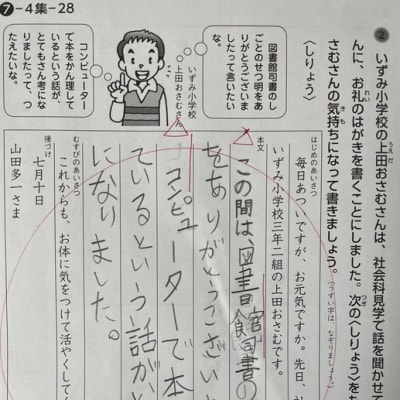 ❼-4集-28
② いずみ小学校の上田おさむさんは、社会科見学で話を聞かせて
んに、お礼のはがきを書くことにしました。次の〈しりょう〉を
さむさんの気持ちになって書きましょう。
(うすい字は、なぞりましょう。)
〈しりょう〉
図書館司書のし
ごとのせつ明をあ
りがとうございま
したって言いたい
な。
いずみ小学校
上田おさむさん
コンピューター
で本をかん理して
いるという話が、
とてもさん考にな
りましたって、つ
たえたいな。
はじめのあいさつ
毎日あついですが、お元気ですか。先日、
いずみ小学校三年二組の上田おさむです。
本文
この間は、図書館司書の
をありがとうござい
コンピューターで本
ているという話が
になりました。
むすびのあいさつ
これからも、お体に気をつけて活やくして
後づけ
七月十日
山田多一さま